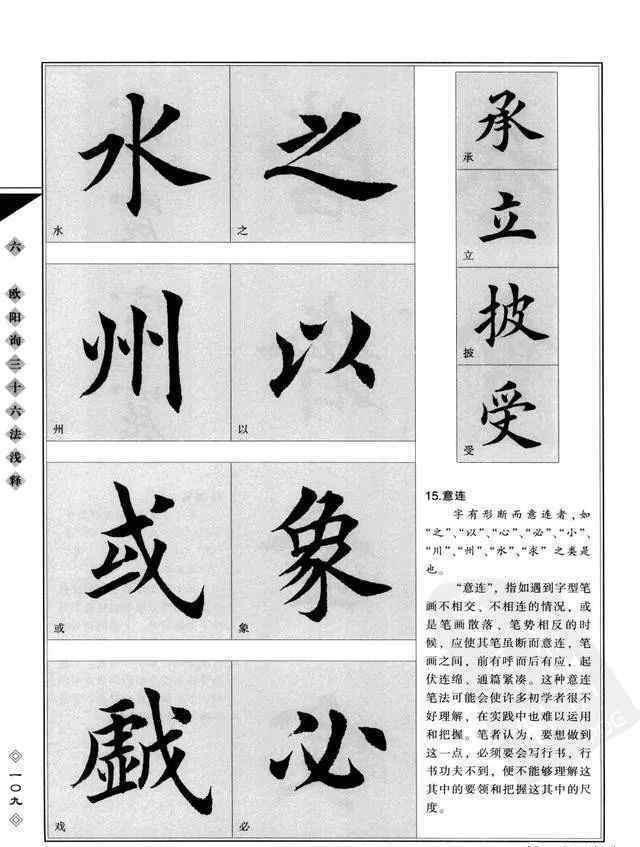 六 欧阳询三十六法浅释
一〇九
水
水
之
之
州
州
以
以
或
或
象
象
戏
戏
必
必
承
承
立
立
披
披
受
受
15.意连
字有形断而意连者，如
“之”、“以”、“心”、“必”、“小”、
“川”、“州”、“水”、“求” 之类是
也。
“意连”，指如遇到字型笔
画不相交、不相连的情况，或
是笔画散落、笔势相反的时
候，应使其笔虽断而意连，笔
画之间，前有呼而后有应，起
伏连绵、通篇紧凑。这种意连
笔法可能会使许多初学者很不
好理解，在实践中也难以运用
和把握。笔者认为，要想做到
这一点，必须要会写行书，行
书功夫不到，便不能够理解这
其中的要领和把握这其中的尺
度。